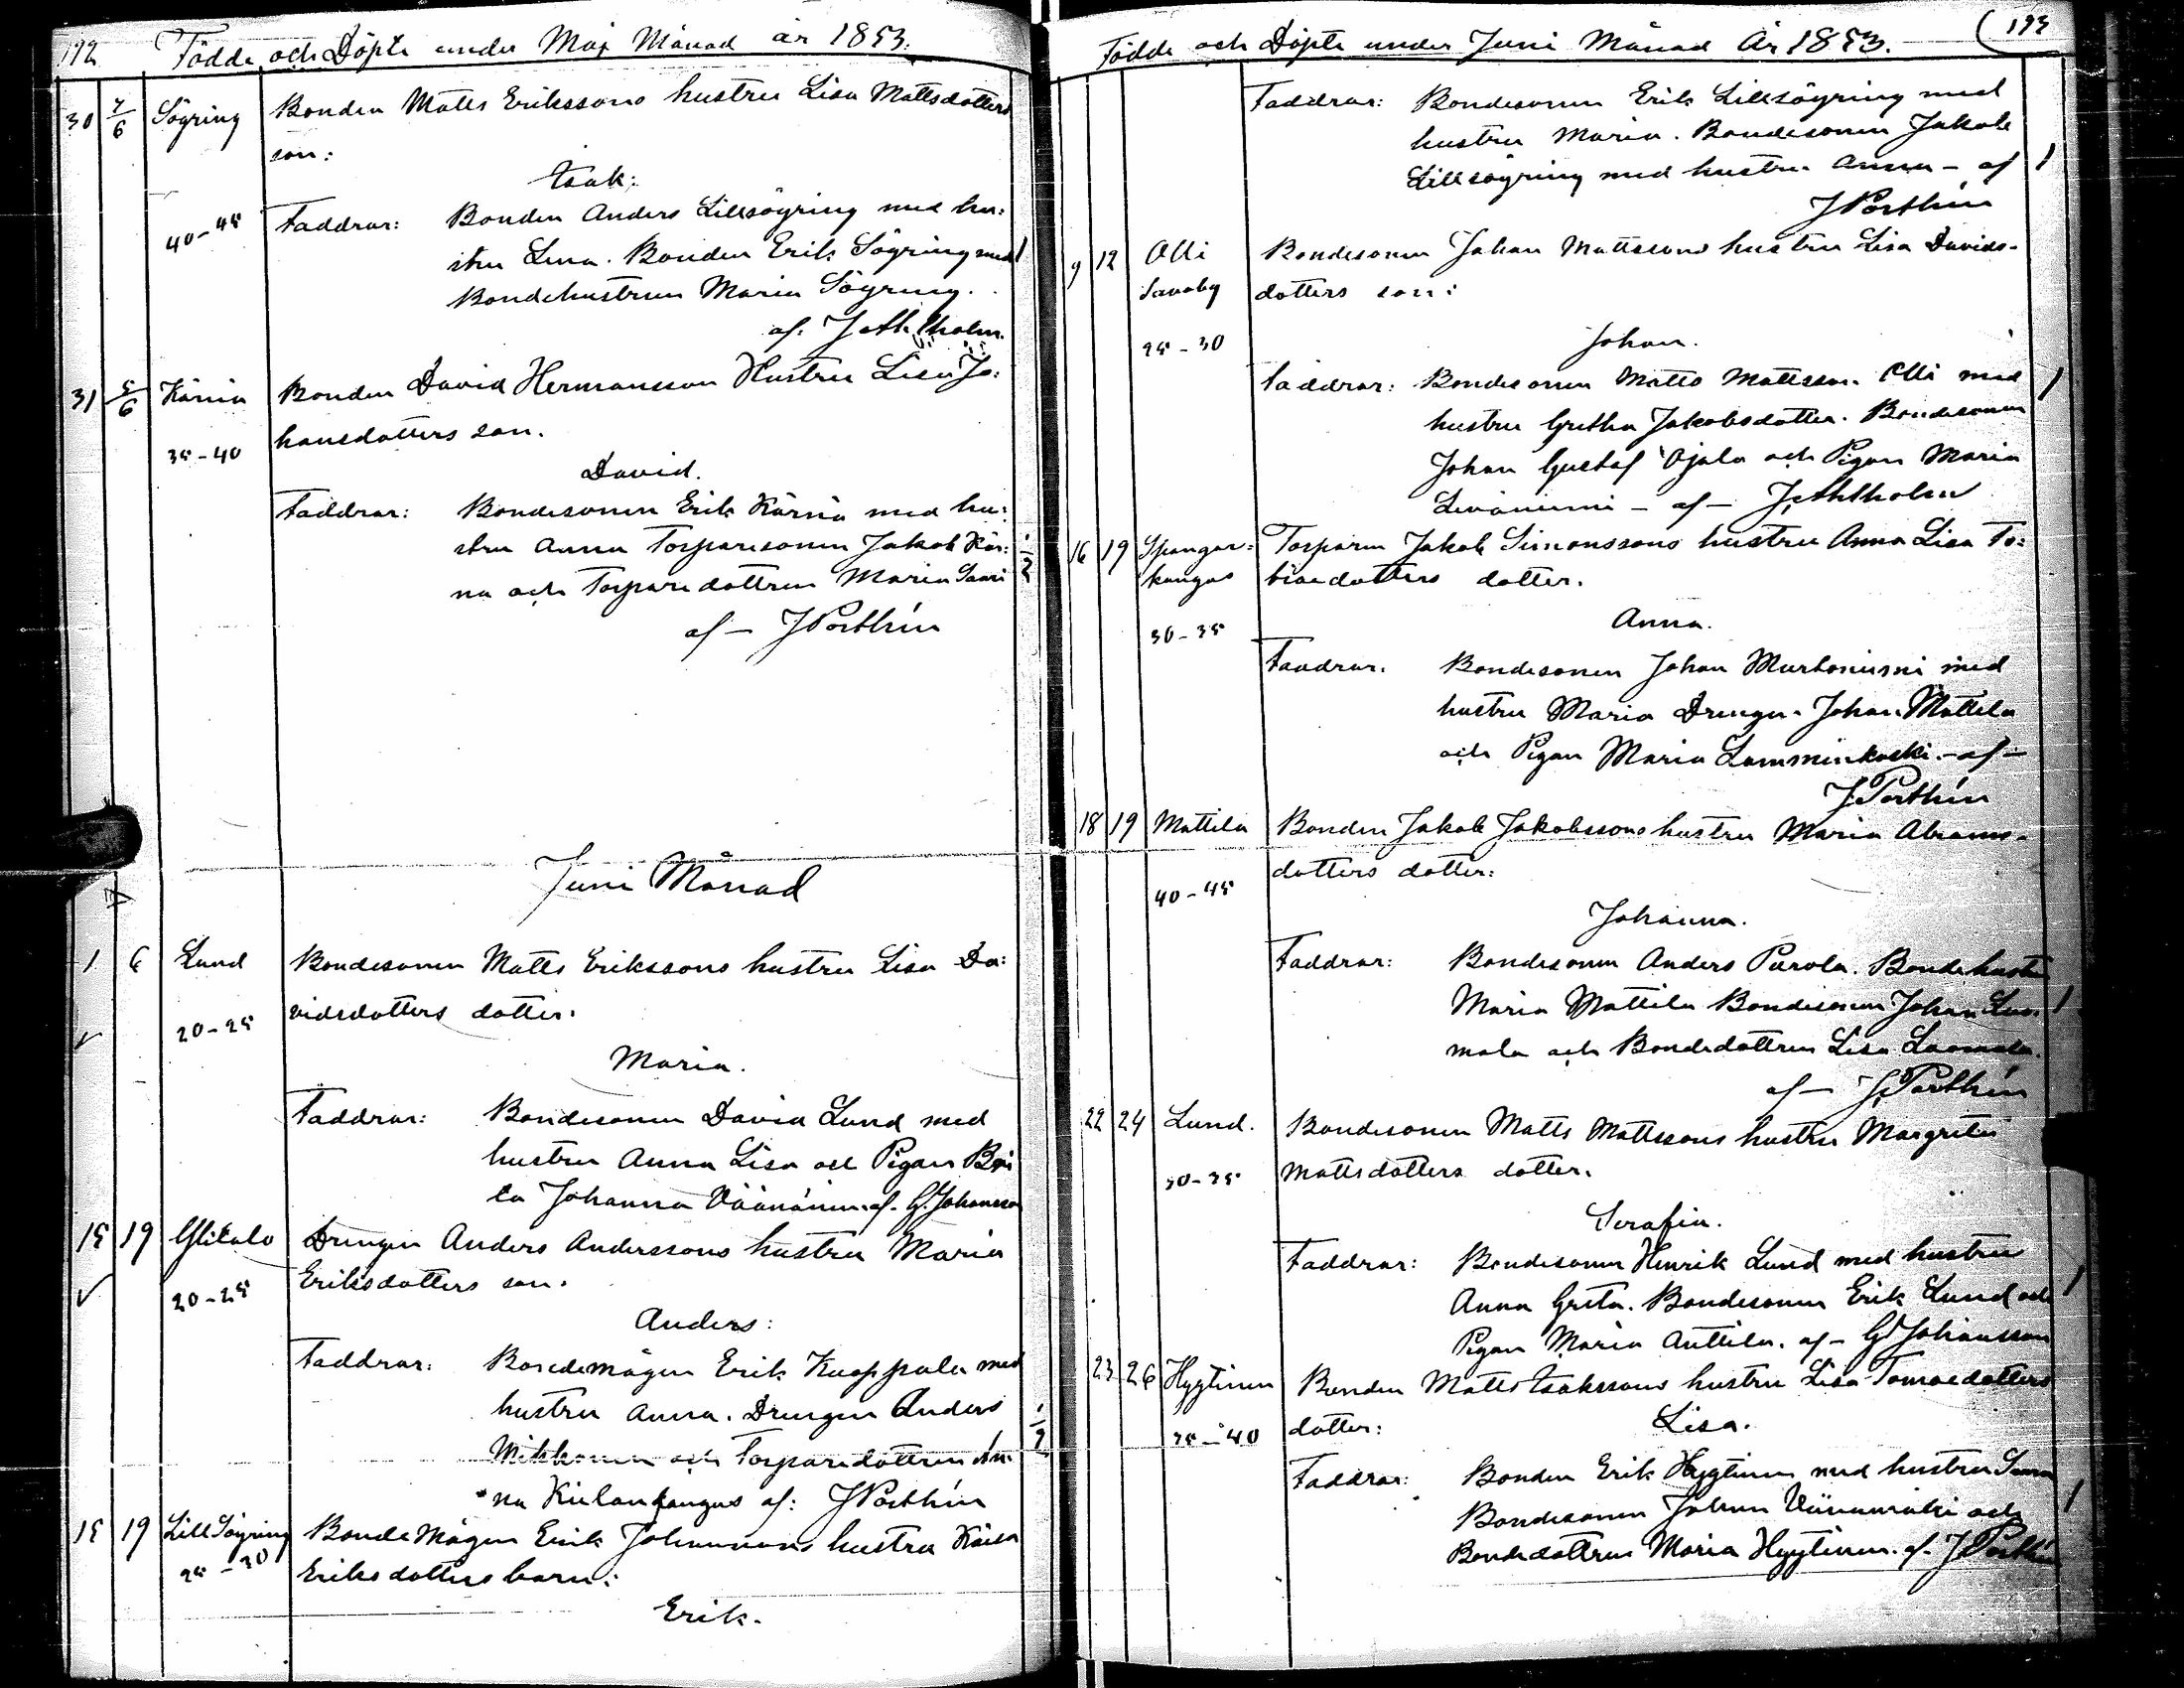 192 Födde och Döpte under Maj Månad år 1853.
30 4/6 Sögring Bonden Matts Erikssons hustru Lisa Mattsdotters
son:
Isak:
40-45 Faddrar: Bonden Anders Lillsögring med hu:
stru Lena. Bonden Erik Sögring med
Bondehustrun Maria Sögring.
af:
31 5/6 Kärnä Bonden David Hermansson Hustru Lisa Jo:
35-40 hansdotters son.
David.
Faddrar: Bondesonen Erik Kärnä med hu:
stru Anna Torparesonen Jakob Kär:
nä och Torparedottren Maria Saari
af – J Porthin
Juni Månad
1 6 Lund Bondesonen Matts Erikssons hustru Lisa Da:
20-25 vidsdotters dotter.
Maria.
Faddrar: Bondesonen David Lund med
hustru Anna Lisa och Pigan Bri
ta Johanna Väänänen. af. G. Johansson
15 19 Ylitalo Drengen Anders Anderssons hustru Maria
20-25 Eriksdotters son.
Anders:
Faddrar: Bondemågen Erik Kuoppala med
hustru Anna. Drengen Anders
och Torparedottren An:
na af: J Porthin
15 19 Lill Sögring Bonde Mågen Erik Johanssons hustru Kaisa
25-30 Eriksdotters barn:
Erik.
Födde och Döpte under Juni Månad År 1853. 193
Faddrar: Bondesonen Erik Lillsögring med
hustru Maria. Bondesonen Jakob
Lillsögring med hustru Anna – af
J Porthin
9 12 Olli Bondesonen Johan Mattssons hustru Lisa Davids-
Savoby dotters son:
25-30 Johan.
Faddrar: Bondesonen Matts Mattsson Olli med
hustru Gretha Jakobsdotter. Bondesonen
Johan Gustaf Ojala och Pigan Maria
Liväniemi – af –
16 19 Spangar: Torparen Jakob Simonssons hustru Anna Lisa To:
kangas biaedotters dotter.
30-35 Anna.
Faddrar. Bondesonen Johan Murtoniemi med
hustru Maria Drengen Johan Mattila
och Pigan Maria Lamminkoski. – af –
J. Porthin
18 19 Mattila Bonden Jakob Jakobssons hustru Maria Abrams-
dotters dotter:
40-45 Johanna.
Faddrar: Bondesonen Anders Purola. Bondehustru
Maria Mattila Bondesonen Johan Luo:
mala och Bondedottren Lisa Luomala.
af – J. Porthin
22 24 Lund. Bondesonen Matts Mattssons hustru Margreta
30-35 Mattsdotters dotter.
Serafia.
Faddrar: Bondesonen Henrik Lund med hustru
Anna Greta. Bondesonen Erik Lund och
Pigan Maria Anttila. af – G Johansson
23 26 Hyytinen Bonden Matts Isakssons hustru Lisa Tomaedotters
35-40 dotter: Lisa.
Faddrar: Bonden Erik Hyytinen med hustru Sanna
Bondesonen Johan Viinamäki och
Bondedottren Maria Hyytinen. af. J Porthin